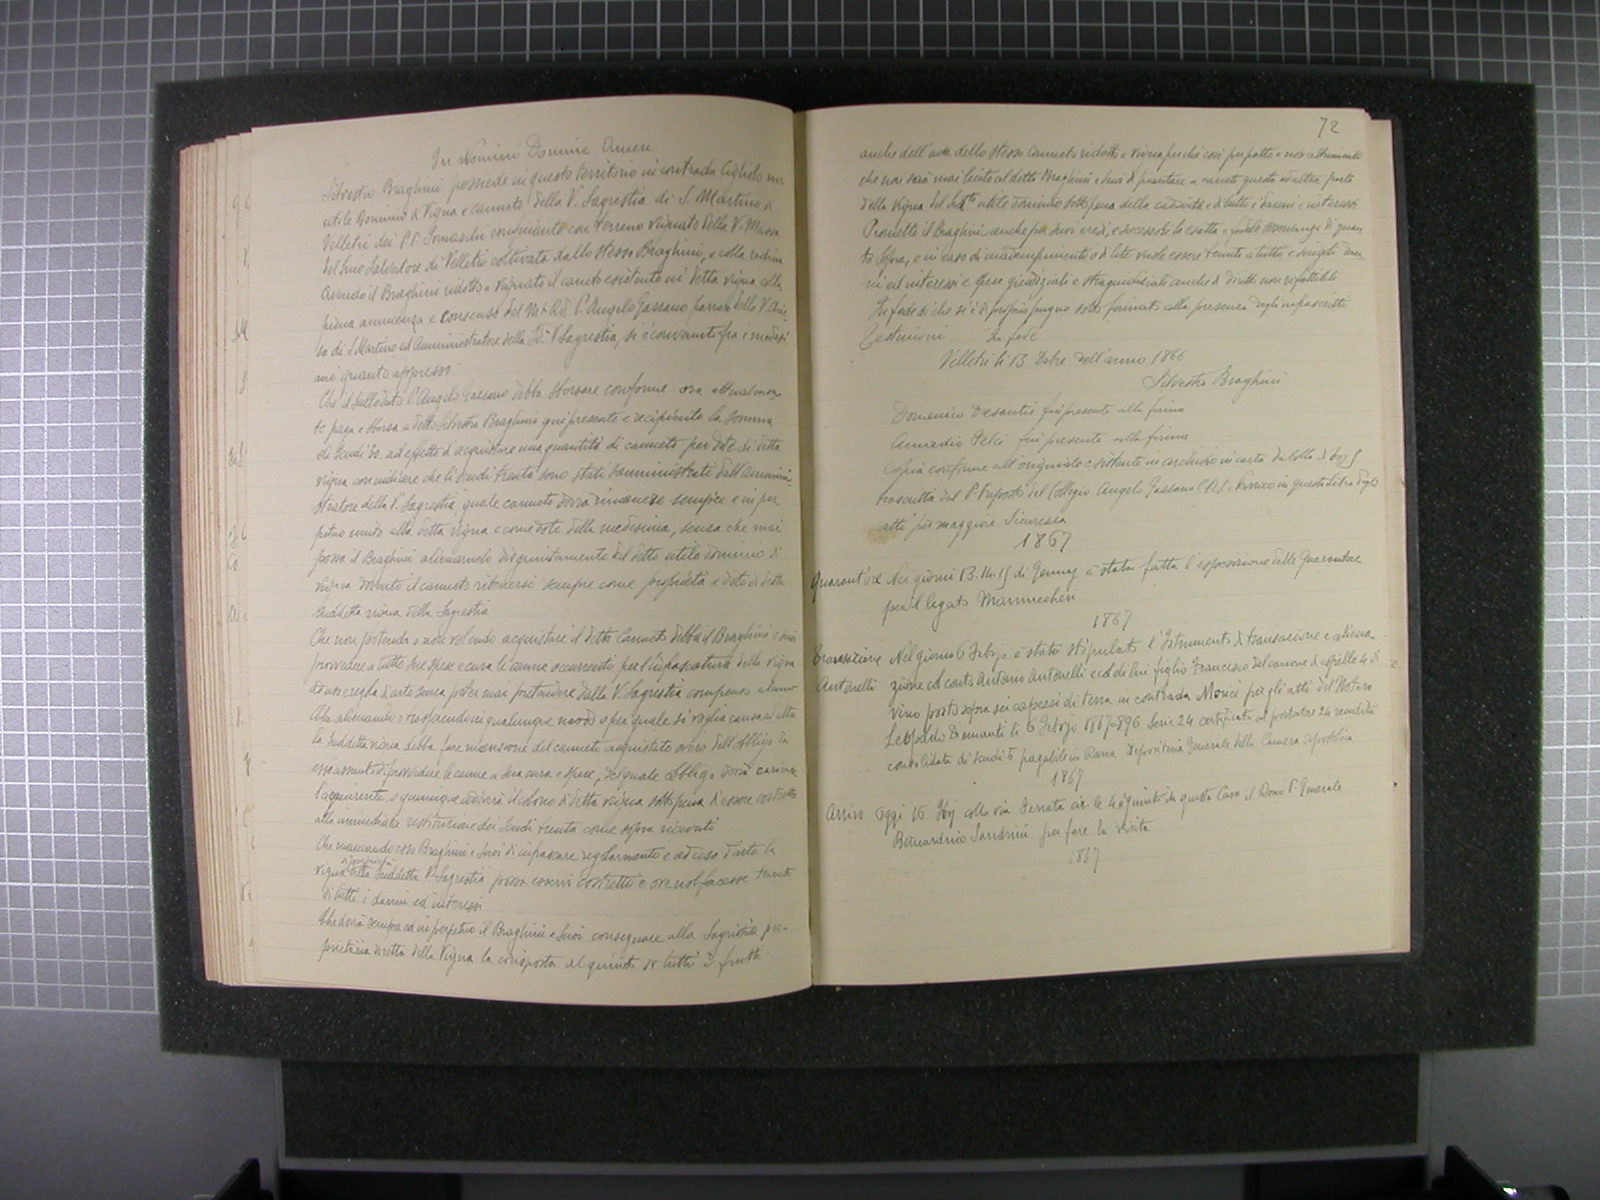 In Nomine Domine Amen
Silvestro Braghini possiede in questo territorio in contrada Cigliolo un
utile Dominio di Vigna e canneto della V. Sagrestia di S. Martino di
Velletri dei P.P. Somaschi confinante con terreno vignato della V. Mensa
del Smo Salvatore di Velletri coltivata dallo stesso Braghini, e colla
Avendo il Braghini ridotto a vignato il canneto esistente in detta vigna colla
piena annuenza e consenso del M.to R.do P. Angelo Gassano parroco della V. Chie
sa di S Martino ed Amministratore della V. Sagrestia, si è convenuto fra i medesi
mi quanto appresso:
Che il sullodato P. Angelo Gassano debba sborsare conforme ora attualmen
te paga e sborsa a detto Silvestro Braghini qui presente e recipiente la somma
di scudi 30. ad effetto d'acquistare una quantità di canneto per dote di detta
vigna con condizione che li scudi trenta sono stati somministrati dall'ammini
stratore della V. Sagrestia, quale canneto dovrà rimanere sempre e in per
petuo unito alla detta vigna e come dote della medesima, senza che mai
possa il Braghini alienarlo disgiuntamente dal detto utile dominio di
vigna dovendo il canneto ritenersi sempre come proprietà e dote di detta
suddetta vigna della Sagrestia
Che non potendo o non volendo acquistare il detto Canneto debba il Braghini e suoi
provvedere a tutte sue spese e cura le canne occorrenti per l'impascatura della vigna
ad uso e regola d'arte senza poter mai pretendere dalla V. Sagrestia compenso alcuno
Che alienando o trasferendo in qualunque modo o per quale si voglia causa ad altri
la suddetta vigna debba fare menzione del canneto acquistato ovvero dell'obbligo da
esso assunto di provvedere le canne a sua cura e spese, del quale obbligo dovrà caricare
l'acquirente o quunque altro il dono di detta vigna sotto pena d'essere costretto
alla immediata restituzione dei scudi trenta come sopra ricevuti
Che mancando esso Braghini e suoi di impascare regolarmente e ad uso d'arte la
vigna della suddetta V. Sagrestia possa esservi costretto e ove nol facesse tenuto
di tutti i danni ed interessi
Che dovrà sempre ed in perpetuo il Braghini e suoi consegnare alla Sagrestia pro-
prietaria diretta della Vigna la corrisposta al quinto di tutti i frutti
72
anche dell'uva dello stesso canneto ridotto a vigna perchè così per patto e non altrimenti
che non sarà mai lecito al detto Braghini e suoi di piantare a canneto questa od altra parte
della vigna del Sud.to utile dominio sotto pena della caducità e di tutti i danni e interessi
Promette il Braghini anche pei suoi eredi, e successori la esatta e fedele osservanza di quan
to sopra, e in caso di inadempimento o di lite vuole essere tenuto a tutti e singoli dan
ni ed interessi e spese giudiziali e stragiudiziali anche di diritto non repetibili
In fede di che si è di proprio pugno sotto firmato alla presenza degli infrascritti
Testimoni In fede
Velletri li 13 Xbre dell'anno 1866
Silvestro Braghini
Domenico Desantis fui presente alla firma
Amadio Felci fui presente alla firma
Copia conforme all'originale esistente in archivio in carta da bollo di
trascritta dal P. Preposto del Collegio Angelo Gassano C.R.S. in questo libro degli
atti per maggiore Sicurezza
1867
Quarant'ore Nei giorni 13. 14. 15 di Gennaj è stata fatta l'esposizione delle Quarantore
per il legato Mannucchesi
1867
Transazione Nel giorno 6 Febrjo è stato stipulato l'istrumento di transazione e aliena-
Antonelli zione ed conto Antonio Antonelli ed di lui figlio Francesco del canone di copelle 4 di
vino posto sopra sei capezzi di terra in contrada Monici per gli atti del Notaro
Leopoldo Diamanti li 6 Febrjo 1867 = 896 Serie 24 certificato al portatore 24 rendita
consolidata di scudi 6 pagabili in Roma Depositeria Generale della Camera Apostolica
1867
Arrivo Oggi 16 colla via Ferrata cir le 4 è giunto da questa Casa il Rmo P. Generale
Bernardino Sandrini per fare la visita
1867